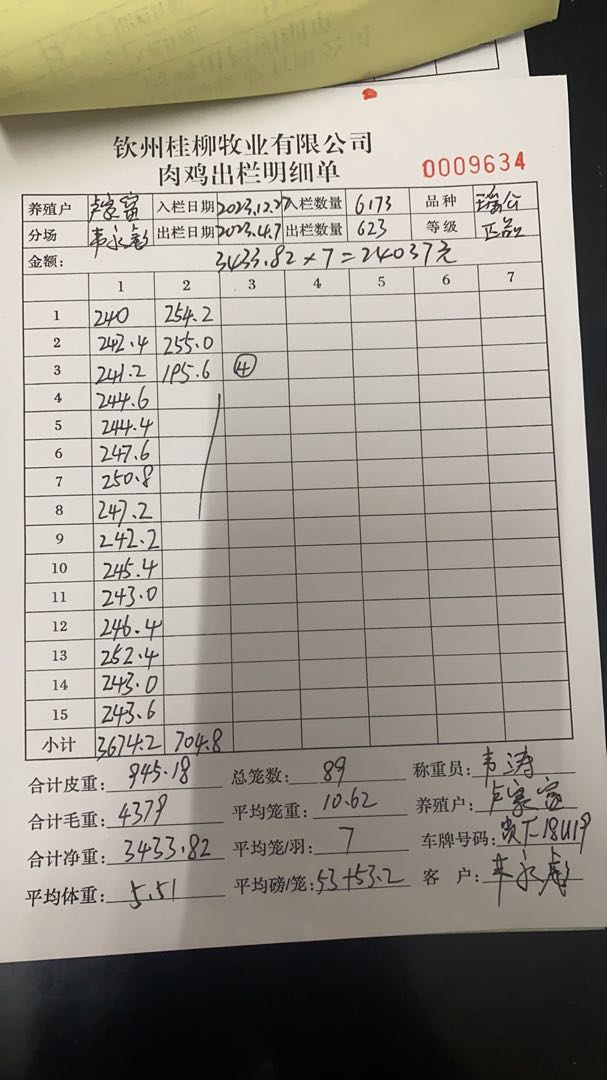 钦州桂柳牧业有限公司
肉鸡出栏明细单 0009634
养殖户 卢家富 入栏日期 2023.12.27 入栏数量 6173 品种 瑞公
分场 韦永彪 出栏日期 2023.4.7 出栏数量 623 等级 正品
金额: 3433.82×7=24037元
1 2 3 4 5 6 7
1 240 254.2
2 242.4 255.0
3 241.2 195.6 ④
4 244.6
5 244.4
6 247.6
7 250.8
8 247.2
9 242.2
10 245.4
11 243.0
12 246.4
13 252.4
14 243.0
15 243.6
小计 3674.2 704.8
合计皮重: 945.18 总笼数: 89 称重员: 韦涛
合计毛重: 4379 平均笼重: 10.62 养殖户: 卢家富
合计净重: 3433.82 平均笼/羽: 7 车牌号码: 18U19
平均体重: 5.51 平均磅/笼: 53+53.2 客 户: 韦永彪